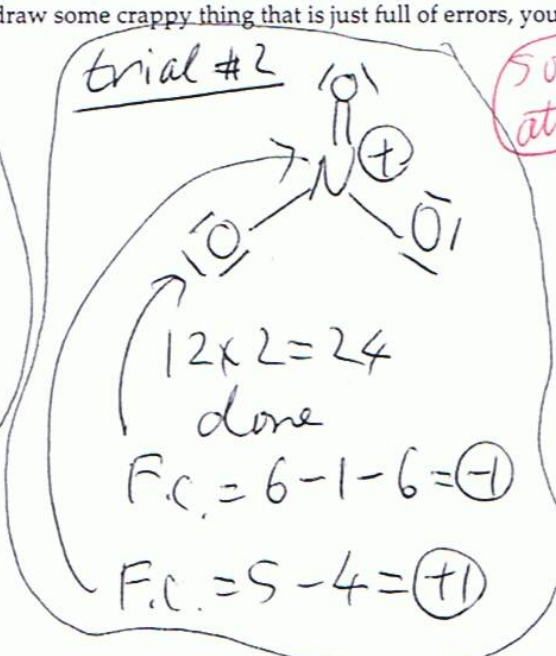 draw some crappy thing that is just full of errors, you
trial #2
so
at
O
N +
O O
12x2=24
done
F.C.=6-1-6=-1
F.C.=5-4=+1